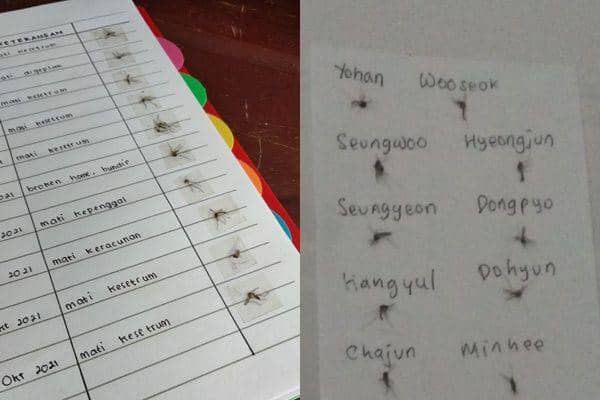 KETERANGAN
mati kesetrum
mati digeplak
mati kesetrum
mati kesetrum
mati kesetrum
2021 broken home, bundir
2021 mati kepenggal
2021 mati keracunan
Okt 2021 mati kesetrum
Okt 2021 mati kesetrum
Yohan Wooseok
Seungwoo Hyeongjun
Seungyeon Dongpyo
Hangyul Dohyun
Chajun Minhee